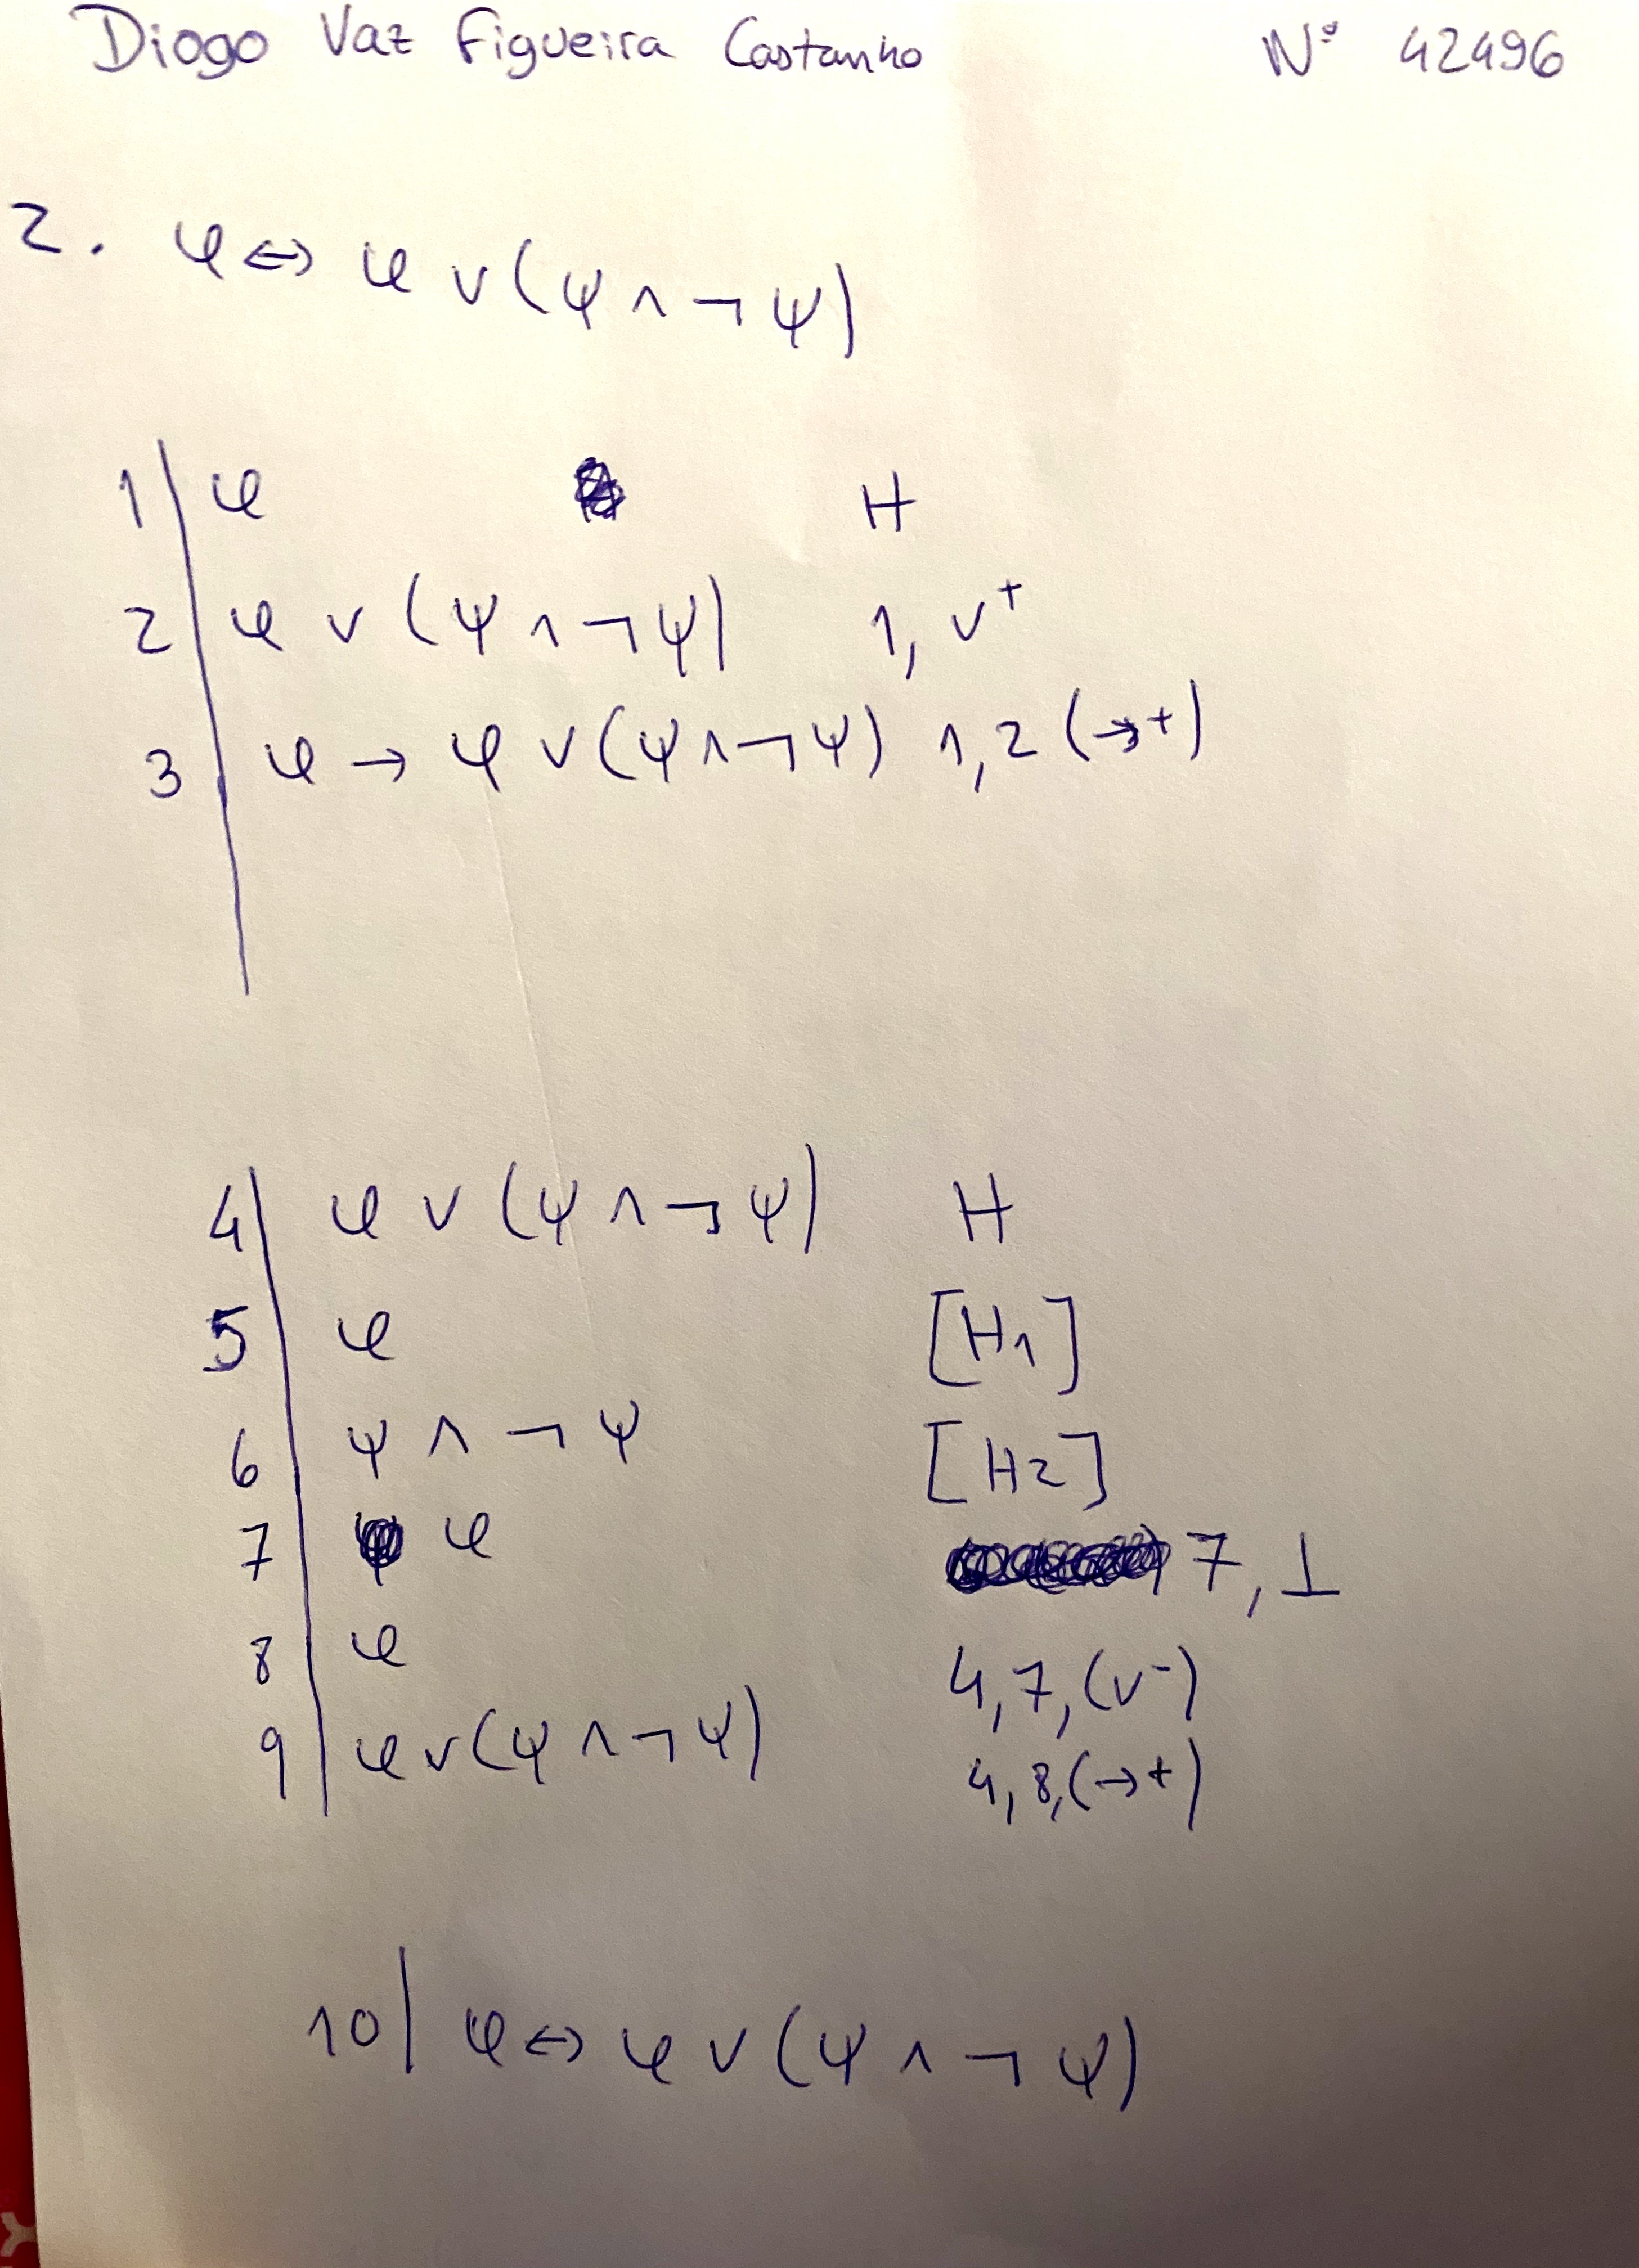 Diogo Vaz Figueira Castanho Nº 42496
2. φ ⇔ φ ∨ (ψ ∧ ¬ ψ)
1 φ H
2 φ ∨ (ψ ∧ ¬ ψ) 1, ∨+
3 φ → φ ∨ (ψ ∧ ¬ ψ) 1,2 (→+)
4 φ ∨ (ψ ∧ ¬ ψ) H
5 φ [H1]
6 ψ ∧ ¬ ψ [H2]
7 φ 7, ⊥
8 φ 4,7, (∨-)
9 φ ∨ (ψ ∧ ¬ ψ) 4,8,(→+)
10 φ ⇔ φ ∨ (ψ ∧ ¬ ψ)